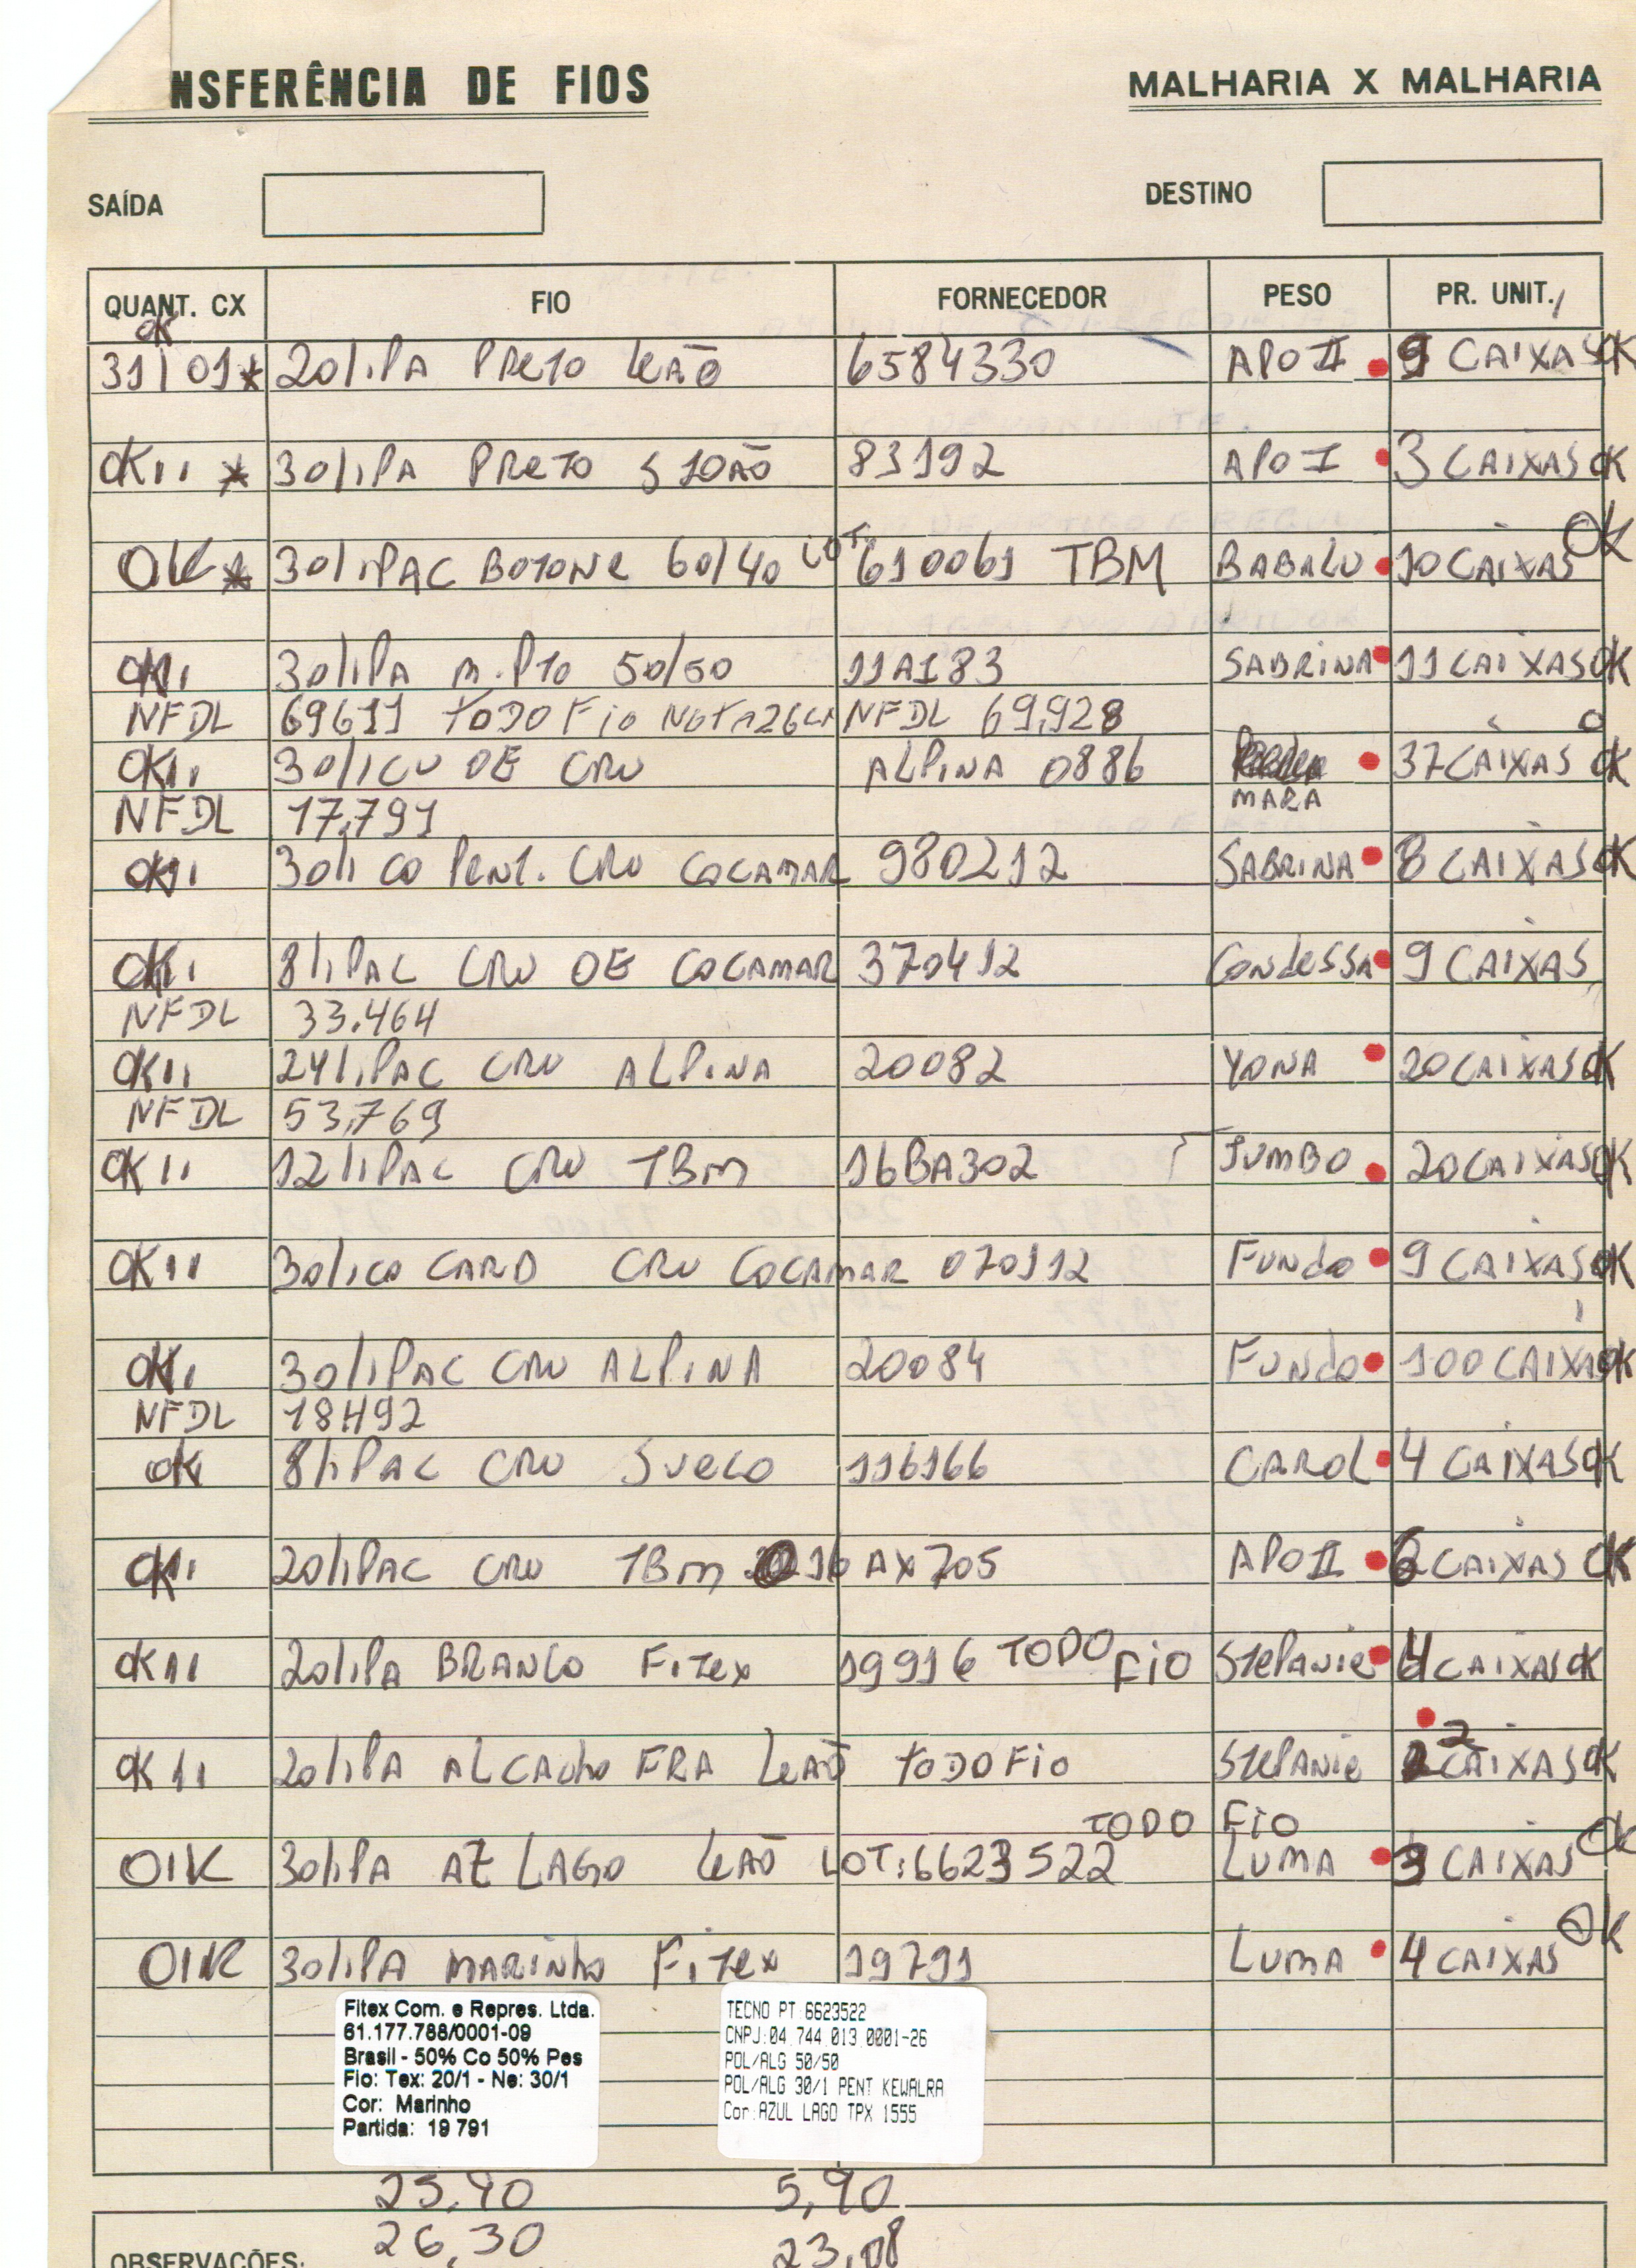 NSFERÊNCIA DE FIOS MALHARIA X MALHARIA
SAÍDA DESTINO
QUANT. CX FIO FORNECEDOR PESO PR. UNIT.
OK
31/01* 20/1 PA PRETO LEÃO 6584330 APO II 9 CAIXAS OK
OK11 * 30/1 PA PRETO S JOÃO 83192 APO I 3 CAIXAS OK
OK * 30/1 PAC BOTONE 60/40 LOT. 610061 TBM BABALU 10 CAIXAS OK
OK11 30/1 PA M. PTO 50/50 11A183 SABRINA 11 CAIXAS OK
NFDL 69611 TODO FIO NOTA 26 CX NFDL 69,928
OK11 30/1 CO OE CRU ALPINA 0886 MARA 37 CAIXAS OK
NFDL 17,791
OK11 30/1 CO PENT. CRU COCAMAR 980212 SABRINA 8 CAIXAS OK
OK11 8/1 PAC CRU OE COCAMAR 370412 CONDESSA 9 CAIXAS
NFDL 33.464
OK11 24/1 PAC CRU ALPINA 20082 YONA 20 CAIXAS OK
NFDL 53,769
OK11 12/1 PAC CRU TBM 16BA302 JUMBO 20 CAIXAS OK
OK11 30/1 CO CARD CRU COCAMAR 070112 FUNDO 9 CAIXAS OK
OK1 30/1 PAC CRU ALPINA 20084 FUNDO 100 CAIXAS OK
NFDL 18492
OK 8/1 PAC CRU SUECO 116166 CAROL 4 CAIXAS OK
OK11 20/1 PAC CRU TBM 16 AX705 APO II 6 CAIXAS OK
OK11 20/1 PA BRANCO FITEX 19916 TODO FIO STEPANIE 4 CAIXAS OK
OK11 20/1 PA ALCACHOFRA LEÃO TODO FIO STEPANIE 2 CAIXAS OK
TODO FIO
OIK 30/1 PA AZ LAGO LEÃO LOT: 6623522 LUMA 3 CAIXAS OK
OIK 30/1 PA MARINHO FITEX 19791 LUMA 4 CAIXAS OK
Fitex Com. e Repres. Ltda.
61.177.788/0001-09
Brasil - 50% Co 50% Pes
Fio: Tex: 20/1 - Ne: 30/1
Cor: Marinho
Partida: 19 791
TECNO PT:6623522
CNPJ:04.744.013.0001-26
POL/ALG 50/50
POL/ALG 30/1 PENT KEWALRA
Cor:AZUL LAGO TPX 1555
25,90 5,90
26,30 23,08
OBSERVAÇÕES: